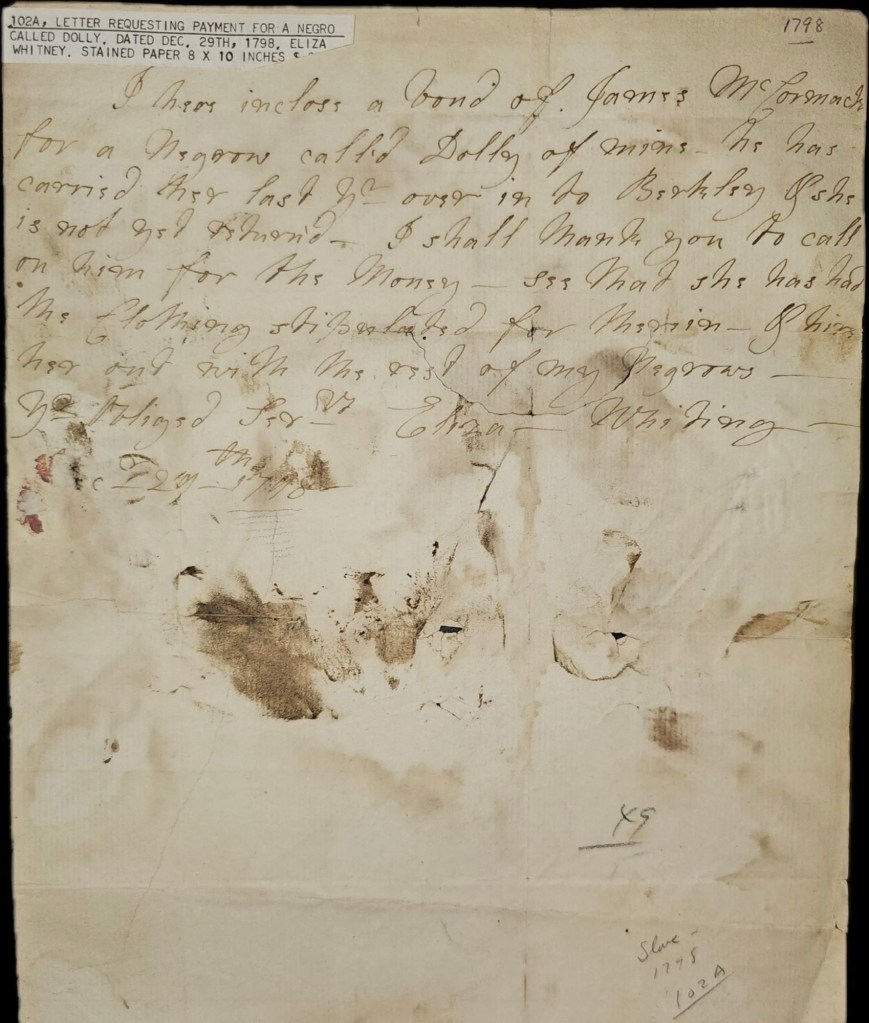 102A, LETTER REQUESTING PAYMENT FOR A NEGRO
CALLED DOLLY, DATED DEC. 29TH, 1798, ELIZA
WHITNEY. STAINED PAPER 8 X 10 INCHES
1798
I here inclose a bond of James McCormack
for a Negrow call'd Dolly of mine - he has
carried her last Yr over in to Berkley & she
is not yet returnd - I shall thank you to call
on him for the Money - see that she has had
the Clothing stipulated for therein - & hire
her out with the rest of my Negrows -
Yr Obliged Servt Eliza - Whiting -
29th 1798
49
Slave -
1798
102A